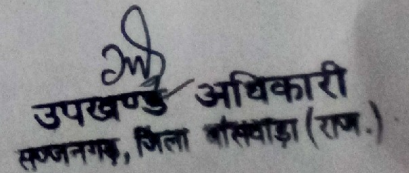 उपखण्ड अधिकारी
सज्जनगढ़, जिला बांसवाड़ा (राज.)